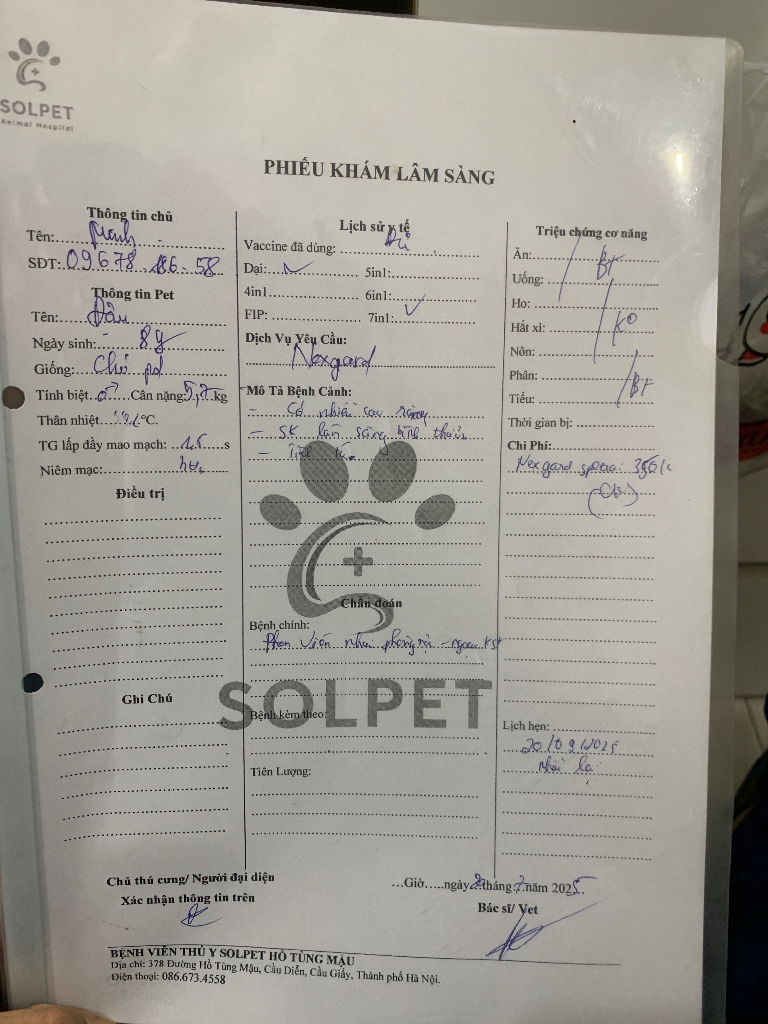 SOLPET
Animal Hospital
PHIẾU KHÁM LÂM SÀNG
Thông tin chủ
Tên:
SĐT: 09678 186 58
Thông tin Pet
Tên: Đậu
Ngày sinh: 8y
Giống: Chó pd
Tính biệt ♂ Cân nặng: 5,7 kg
Thân nhiệt °C.
TG lấp đầy mao mạch: 1.5 s
Niêm mạc:
Điều trị
Ghi Chú
Lịch sử y tế
Vaccine đã dùng: Đủ
Dại: ✓ 5in1:
4in1 6in1:
FIP: 7in1: ✓
Dịch Vụ Yêu Cầu:
Nexgard
Mô Tả Bệnh Cảnh:
- Có nhiều cao răng
- SK lâm sàng bình thường
-
SOLPET
Chẩn đoán
Bệnh chính:
ngoại KST
Bệnh kèm theo:
Tiên Lượng:
Triệu chứng cơ năng
Ăn:
Uống: BT
Ho:
Hắt xì: Ko
Nôn:
Phân: BT
Tiểu:
Thời gian bị:
Chi Phí:
Nexgard spectra: 350k
(Ck)
Lịch hẹn:
20/09/2025
nhắc lại
Chủ thú cưng/ Người đại diện
Xác nhận thông tin trên
...Giờ.....ngày tháng 7 năm 2025
Bác sĩ/ Vet
BỆNH VIÊN THÚ Y SOLPET HỒ TÙNG MẬU
Địa chỉ: 378 Đường Hồ Tùng Mậu, Cầu Diễn, Cầu Giấy, Thành phố Hà Nội.
Điện thoại: 086.673.4558